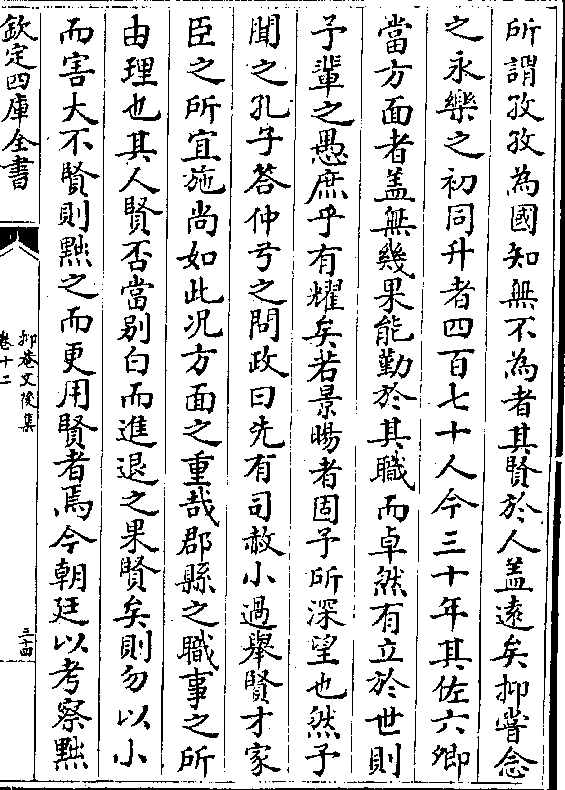 所謂孜孜為國知無不為者其賢於人盖遠矣抑嘗念
之永樂之初同升者四百七十人今三十年其佐六卿
當方面者盖無幾果能勤於其職而卓然有立於世則
予輩之愚庶乎有耀矣若景暘者固予所深望也然予
聞之孔子答仲弓之問政曰先有司赦小過舉賢才家
臣之所宜施尚如此况方面之重哉郡縣之職事之所
由理也其人賢否當别白而進退之果賢矣則勿以小
而害大不賢則黜之而更用賢者焉今朝廷以考察黜
欽定四庫全書
抑菴文後集
卷十二
三十四